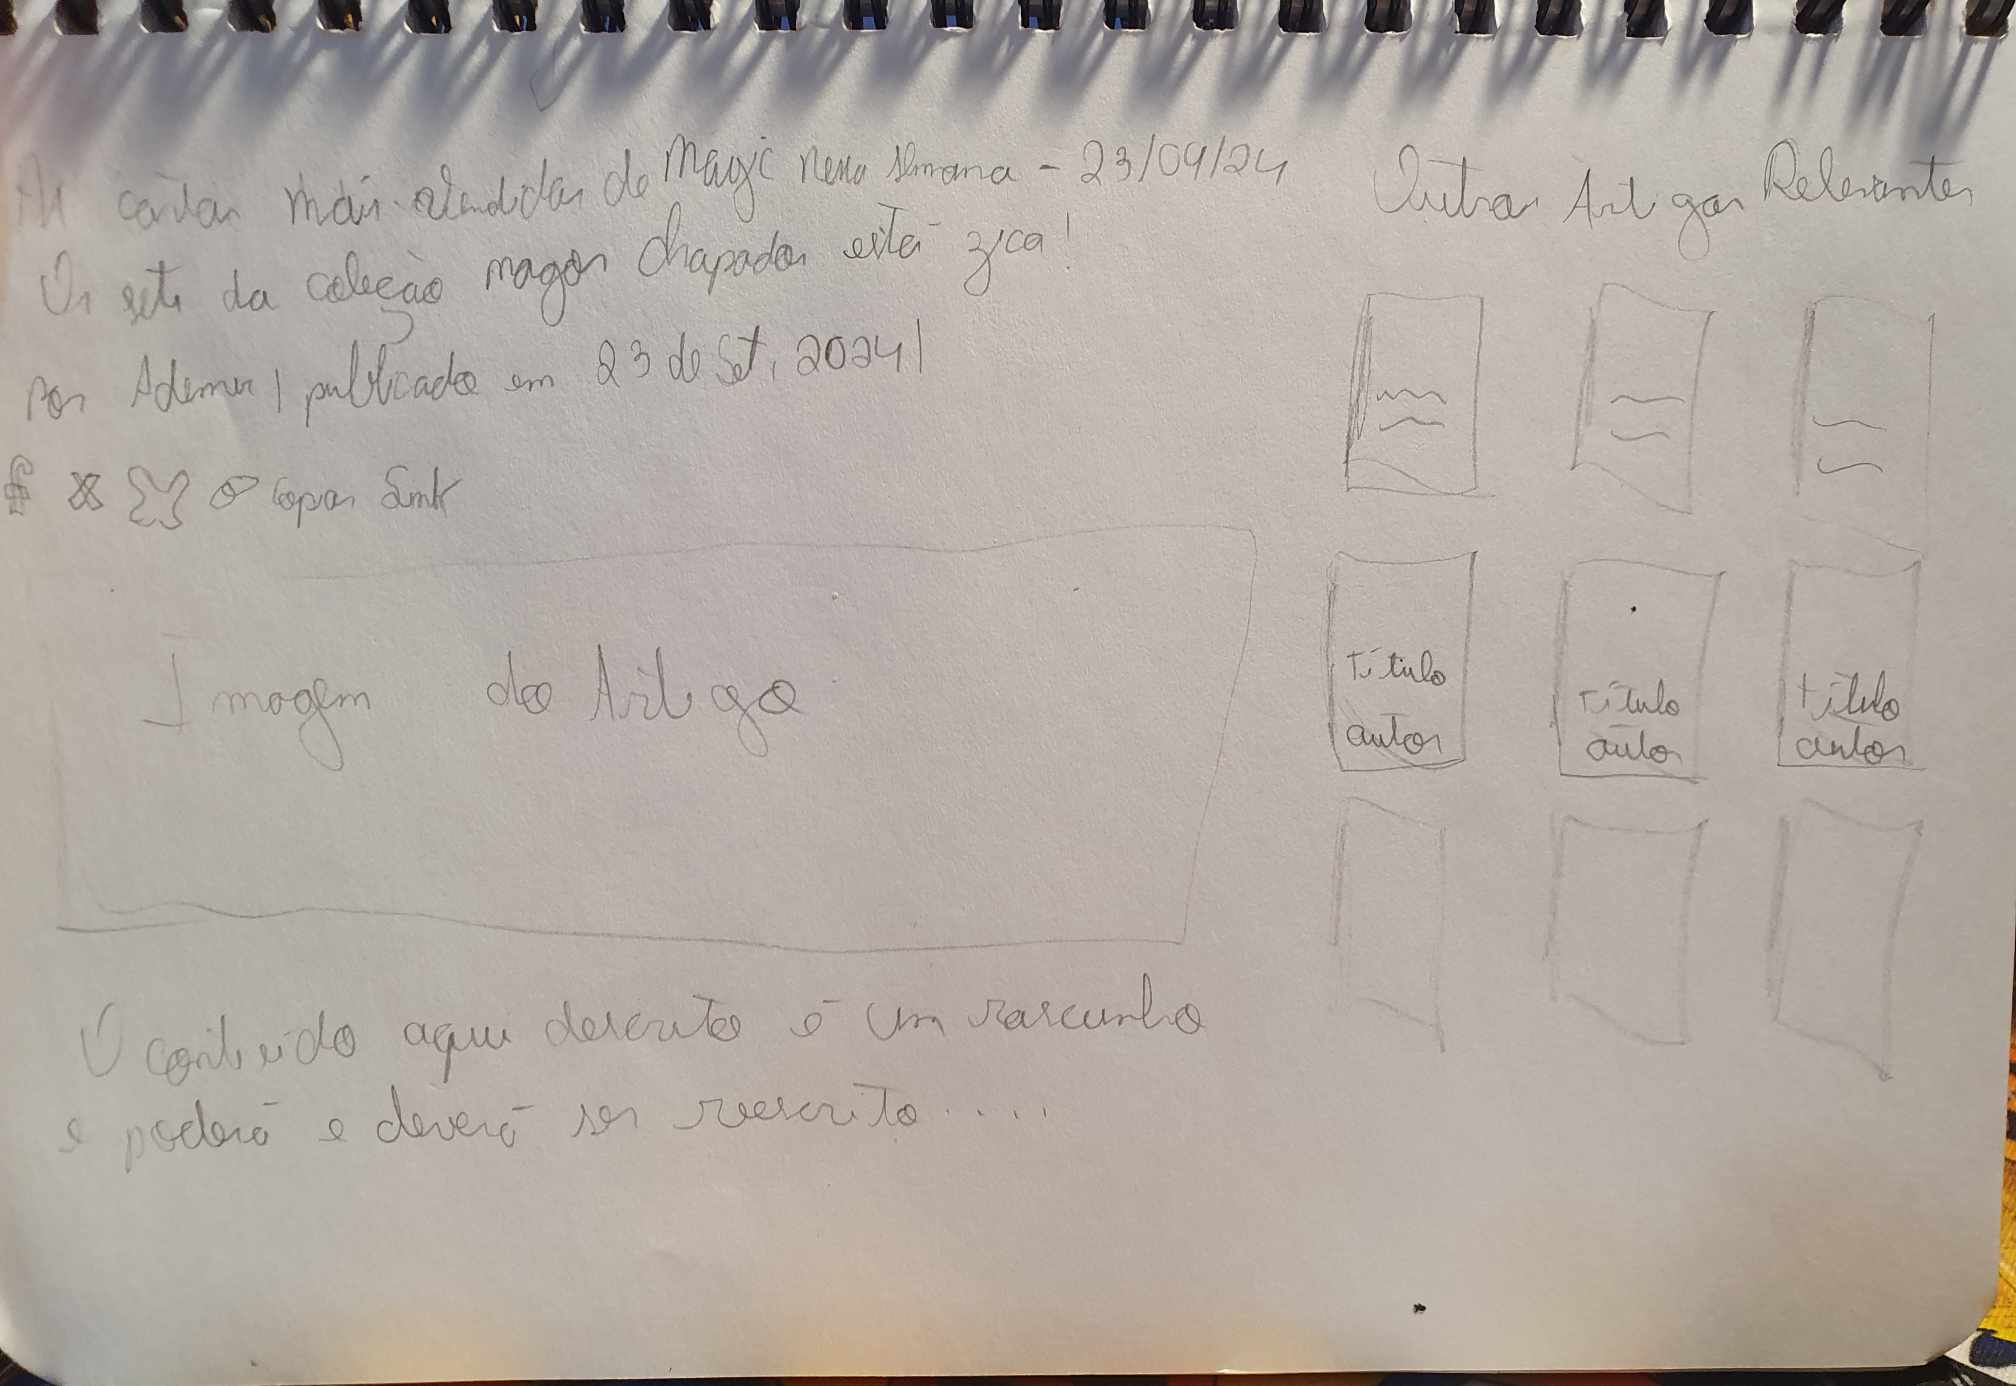 As cartas mais vendidas de Magic nessa semana - 23/09/24
Os sets da coleção magos chapados está zica!
por Ademir | publicado em 23 de Set, 2024 |
copiar link
Imagem do Artigo
O conteúdo aqui descrito é um rascunho
e poderá e deverá ser reescrito.....
Outros Artigos Relevantes
título
autor
título
autor
título
autor